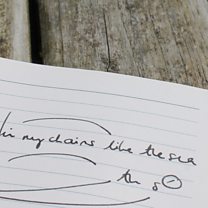 in my chains like the sea
the s